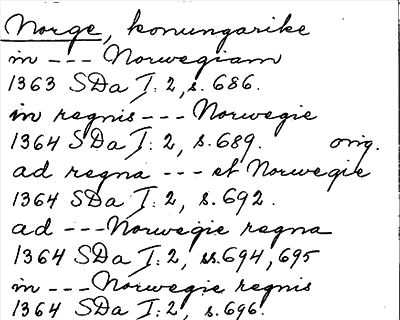 Norge, konungarike
in --- Norwegiam
1363 SDa I: 2, s. 686.
in regnis --- Norwegie
1364 SDa I: 2, s. 689. orig.
ad regna --- et Norwegie
1364 SDa I: 2, s. 692.
ad --- Norwegie regna
1364 SDa I: 2, ss. 694, 695
in --- Norwegie regnis
1364 SDa I: 2, s. 696.